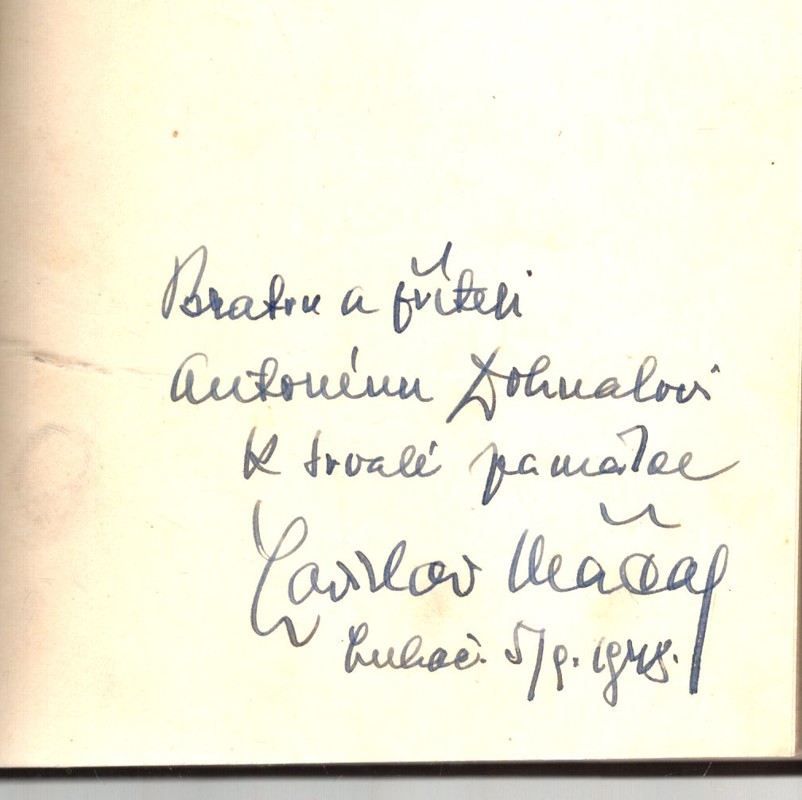 Bratru a příteli
Antonínu Dohnalovi
k trvalé památce
Ladislav
Luhač. 5/9. 1948.